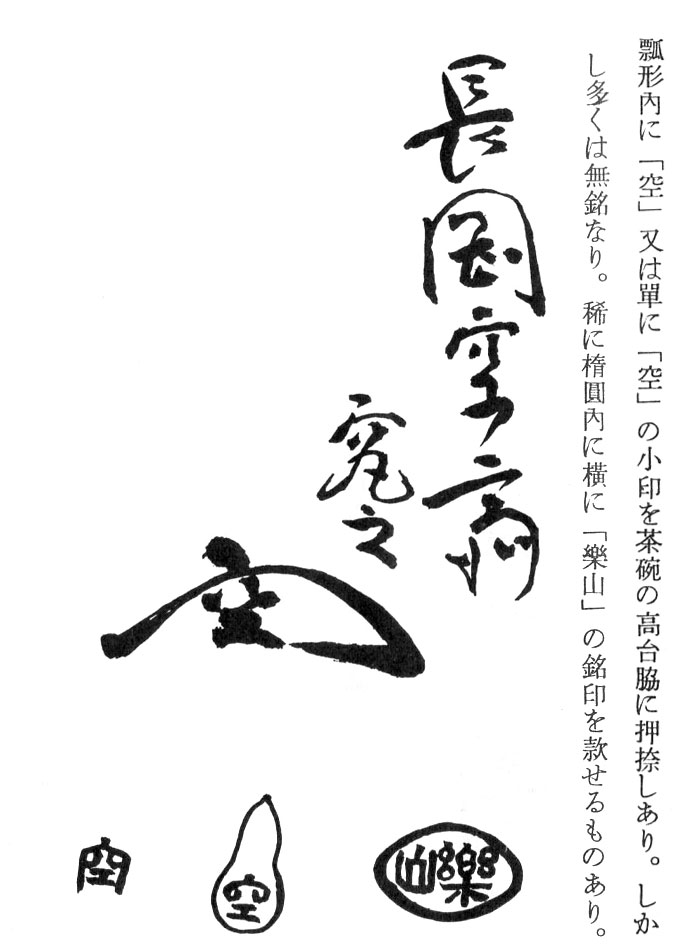 瓢形內に「空」又は單に「空」の小印を茶碗の高台脇に押捺しあり。しか
し多くは無銘なり。稀に楕圓內に橫に「樂山」の銘印を款せるものあり。
長岡空斎
空
樂山
空
空